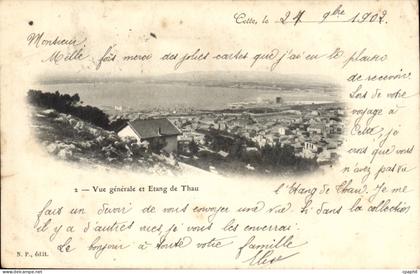 Cette, le 27 9bre 1902
Monsieur
Mille fois merci des jolies cartes que j'ai eu le plaisir
de recevoir.
Lors de votre
voyage à
Cette je
crois que vous
n'avez pas
2 — Vue générale et Etang de Thau
l'Etang de Thau. Je me
fais un devoir de vous envoyer une vue si dans la collection
il y a d'autres vues je vous les enverrai.
Le bonjour à toute votre famille
N. P., édit.